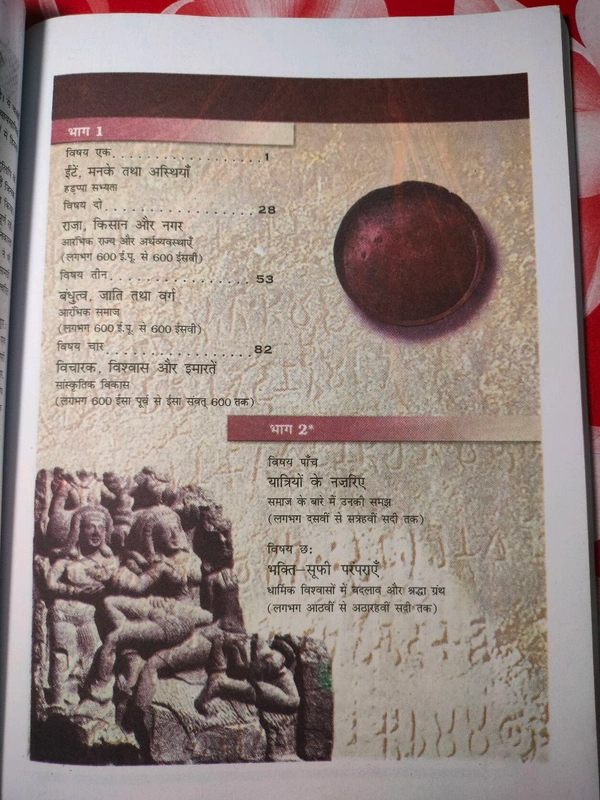 भाग 1
विषय एक. . . . . . . . . . . . . . . . . . . . 1
ईंटें, मनके तथा अस्थियाँ
हड़प्पा सभ्यता
विषय दो. . . . . . . . . . . . . . . . . . . . 28
राजा, किसान और नगर
आरंभिक राज्य और अर्थव्यवस्थाएँ
(लगभग 600 ई.पू. से 600 ईसवी)
विषय तीन. . . . . . . . . . . . . . . . . . . 53
बंधुत्व, जाति तथा वर्ग
आरंभिक समाज
(लगभग 600 ई.पू. से 600 ईसवी)
विषय चार. . . . . . . . . . . . . . . . . . . 82
विचारक, विश्वास और इमारतें
सांस्कृतिक विकास
(लगभग 600 ईसा पूर्व से ईसा संवत् 600 तक)
भाग 2*
विषय पाँच
यात्रियों के नज़रिए
समाज के बारे में उनकी समझ
(लगभग दसवीं से सत्रहवीं सदी तक)
विषय छः
भक्ति–सूफी परंपराएँ
धार्मिक विश्वासों में बदलाव और श्रद्धा ग्रंथ
(लगभग आठवीं से अठारहवीं सदी तक)